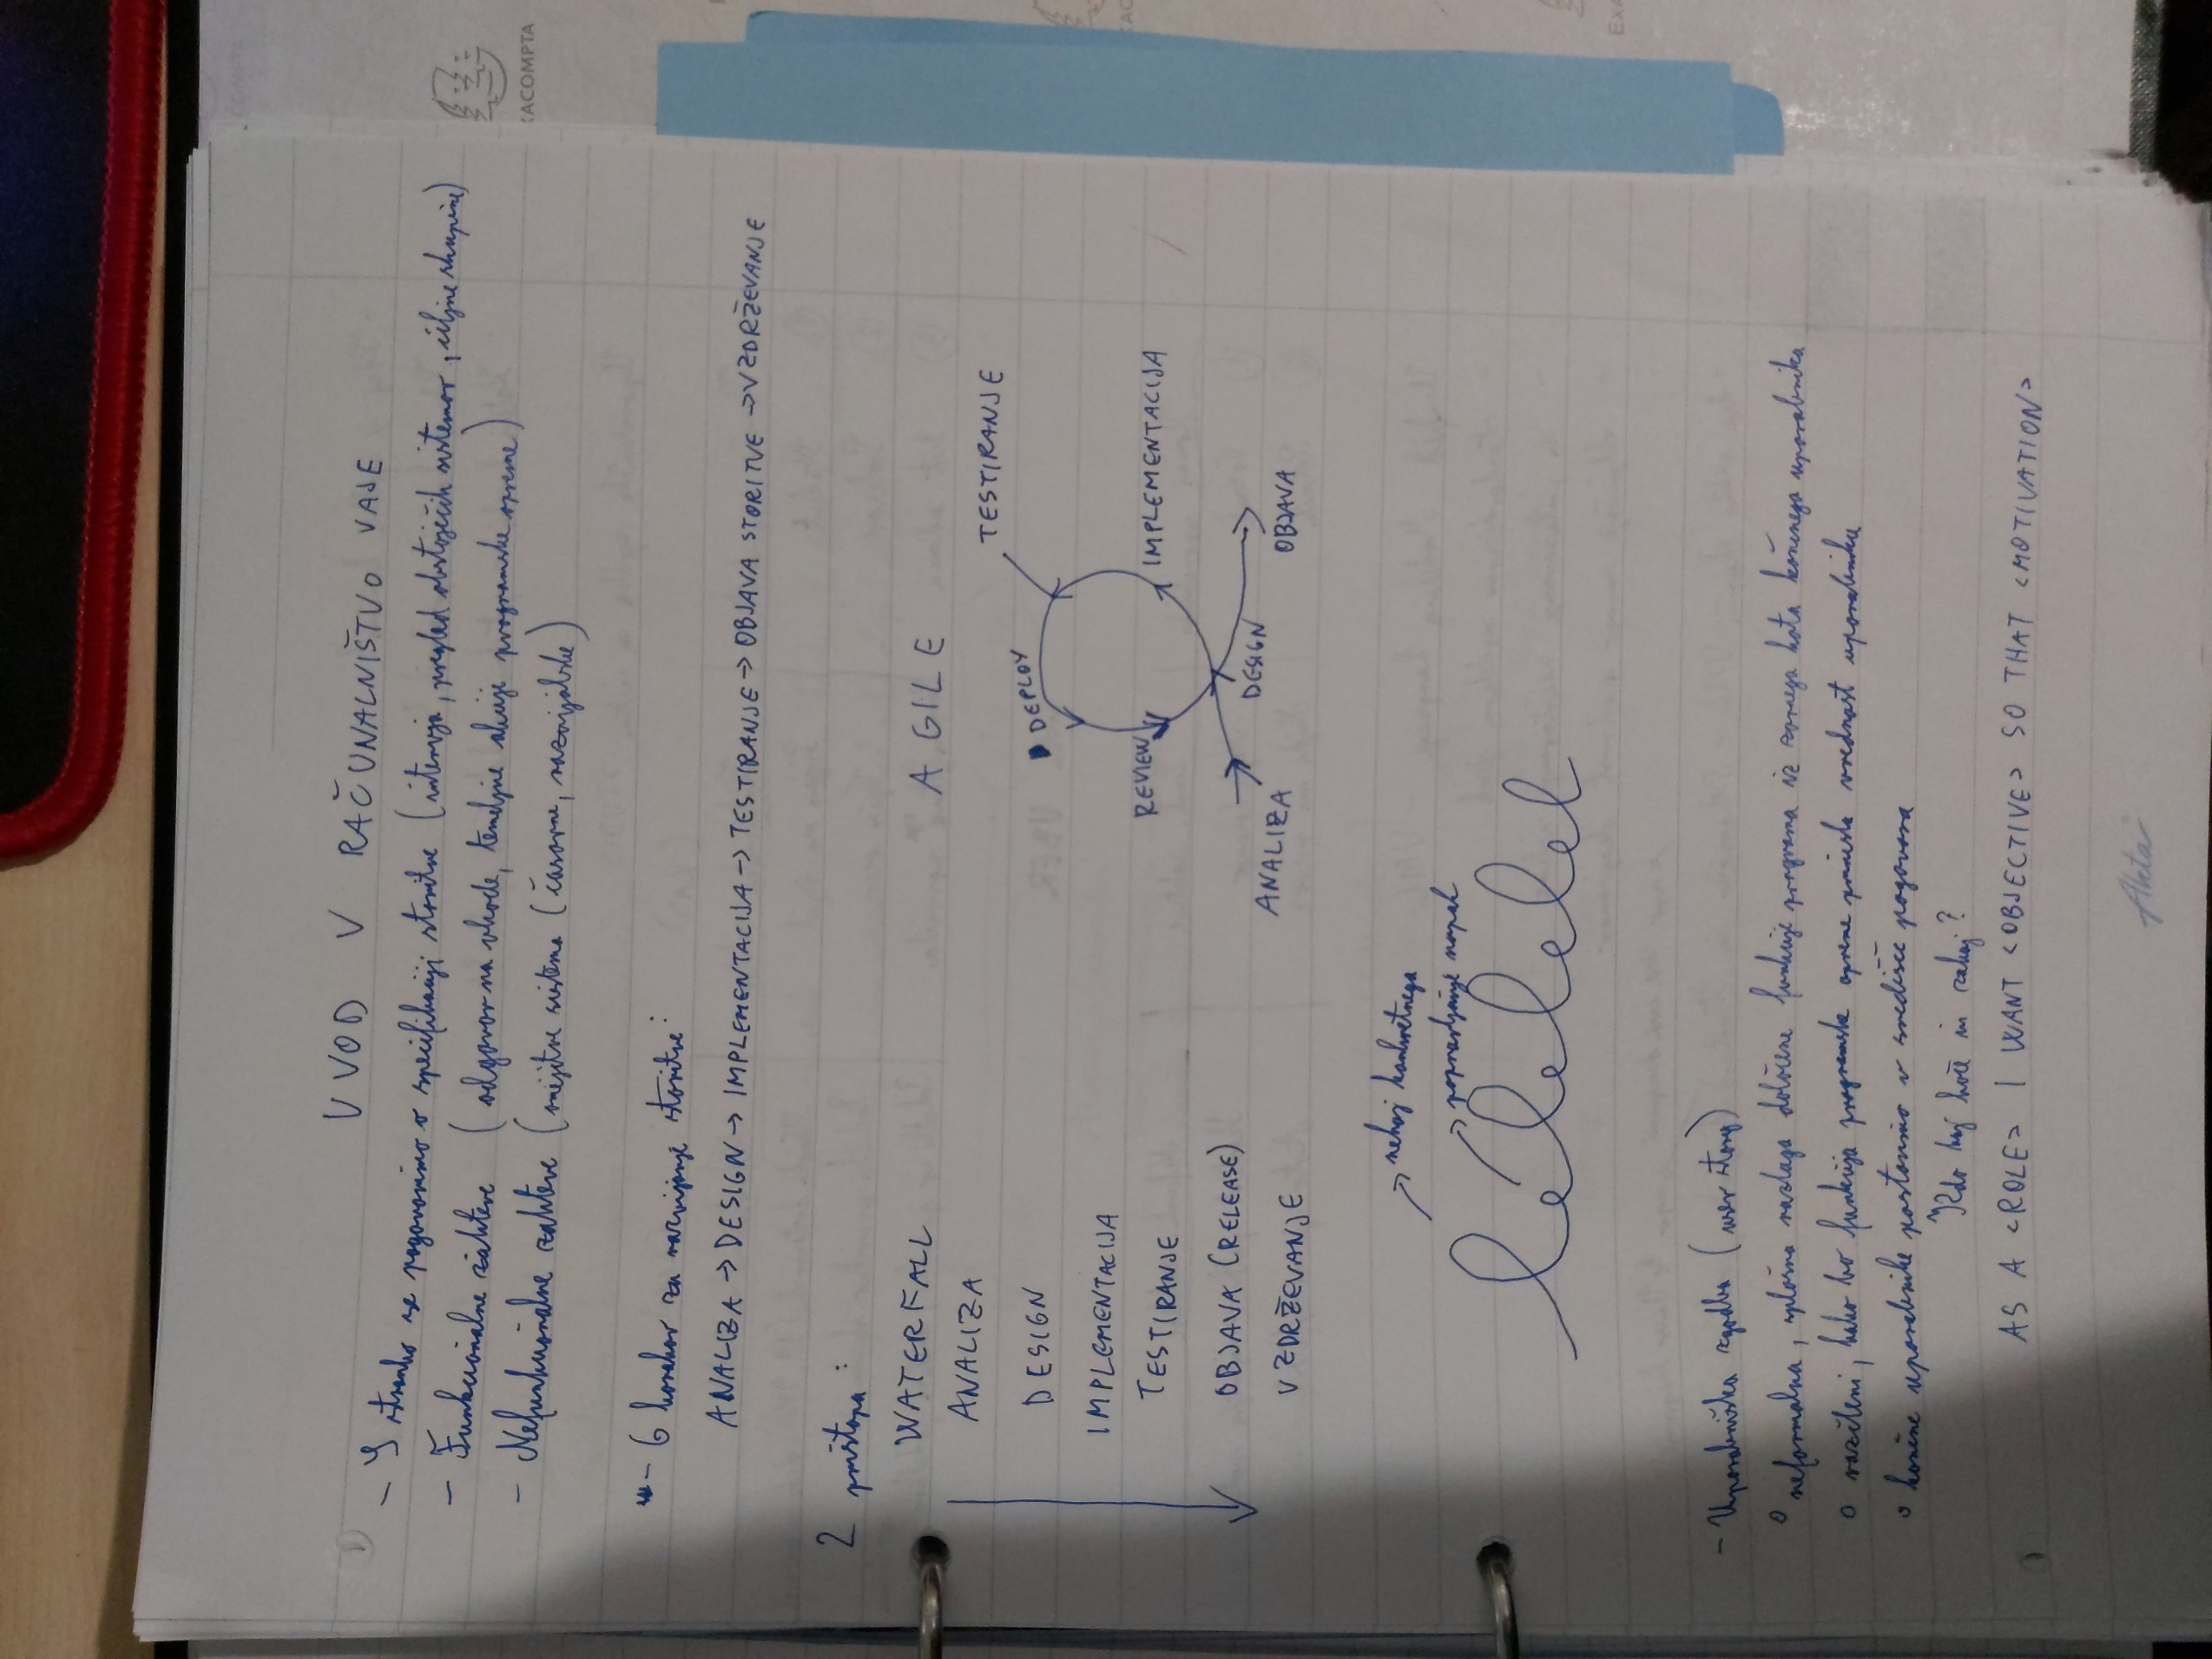 UVOD V RAČUNALNIŠTVO VAJE
- S stranko se pogovorimo o specifikaciji storitve (intervju, pregled obstoječih sistemov, ciljne skupine)
- Funkcionalne zahteve (odgovor na vhode, temeljne akcije programske opreme)
- Nefunkcionalne zahteve (omejitve sistema (časovne, razvijalske)
- 6 korakov za razvijanje storitve:
ANALIZA → DESIGN → IMPLEMENTACIJA → TESTIRANJE → OBJAVA STORITVE → VZDRŽEVANJE
2 pristopa:
WATERFALL
ANALIZA
DESIGN
IMPLEMENTACIJA
TESTIRANJE
OBJAVA (RELEASE)
VZDRŽEVANJE
AGILE
TESTIRANJE
DEPLOY
REVIEW
IMPLEMENTACIJA
ANALIZA
DESIGN
OBJAVA
→ nekaj konkretnega
→ popravljanje napak
- Uporabniška zgodba (user story)
o neformalna, splošna razlaga določene funkcije programa iz zornega kota končnega uporabnika
o razčleni, kako bo funkcija programske opreme prinesla vrednost uporabniku
o končne uporabnike postavimo v središče pogovora
Kdo kaj hoče in zakaj?
AS A <ROLE> I WANT <OBJECTIVE> SO THAT <MOTIVATION>
Akta
EXACOMPTA